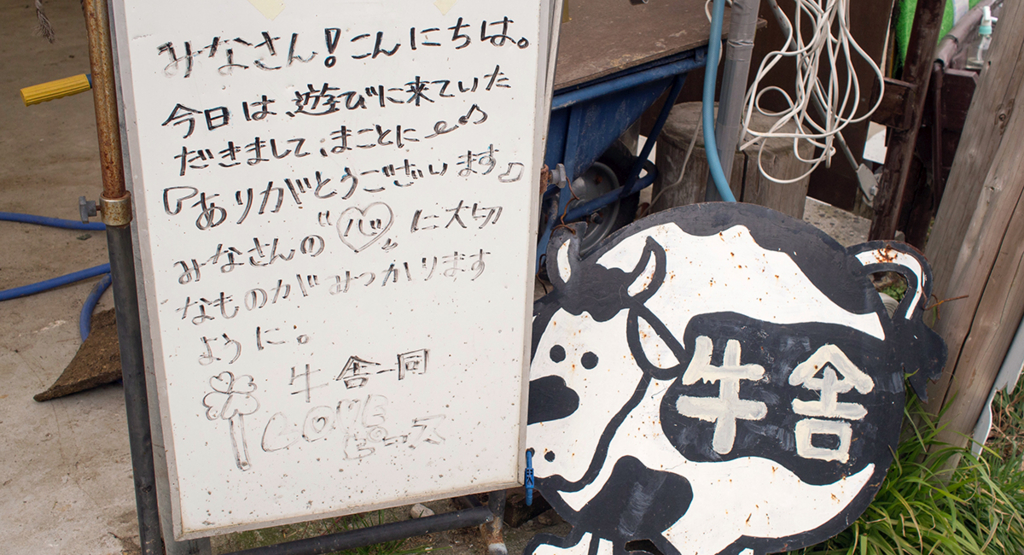 みなさん!こんにちは。
今日は、遊びに来ていた
だきまして、まことに
ありがとうございます♫
みなさんの"心"に大切
なものがみつかります
ように。
牛舎一同
LOVE
ピース
牛舎